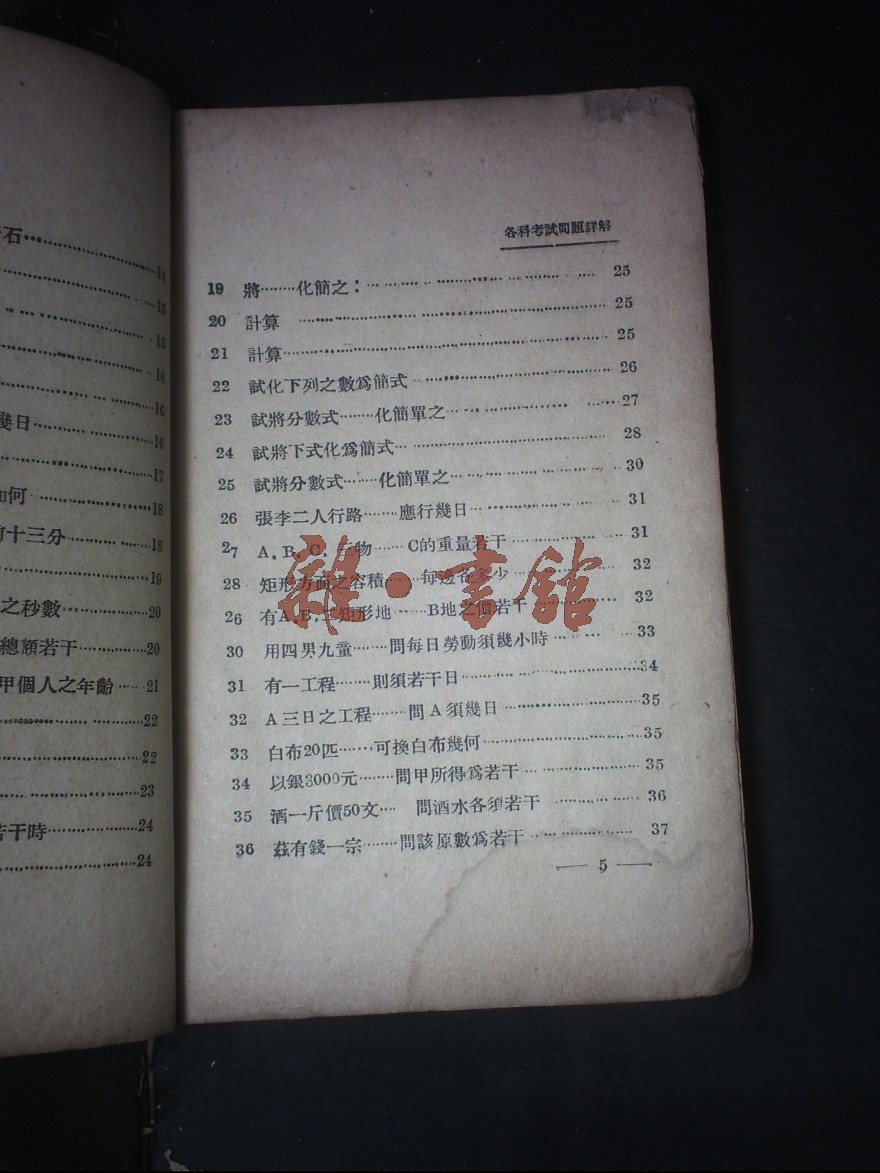 石……14
……15
……15
……16
……16
幾日……16
……17
如何……18
十三分……18
……19
之秒數……20
總額若干……20
甲個人之年齡……21
……22
……22
……23
若干時……24
……24
各科考試問題詳解
19 將……化簡之：……25
20 計算……25
21 計算……25
22 試化下列之數爲簡式……26
23 試將分數式……化簡單之……27
24 試將下式化爲簡式……28
25 試將分數式……化簡單之……30
26 張李二人行路……應行幾日……31
27 A．B．C．三物……C的重量若干……31
28 矩形方面之容積……每邊各多少……32
26 有A．B．二矩形地……B地之價若干……32
30 用四男九童……問每日勞動須幾小時……33
31 有一工程……則須若干日……34
32 A三日之工程……問A須幾日……35
33 白布20匹……可換白布幾何……35
34 以銀3000元……問甲所得爲若干……35
35 酒一斤價50文……問酒水各須若干……36
36 茲有錢一宗……問該原數爲若干……37
— 5 —
雜·書館